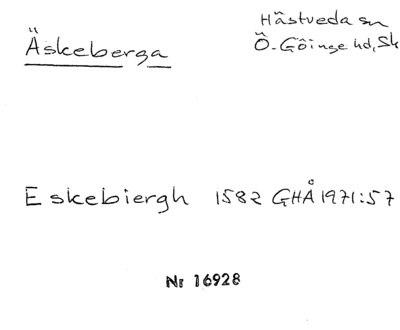 Äskeberga
Hästveda sn
Ö. Göinge hd, Sk
Eskebiergh 1582 GHÅ 1971:57
Nr 16928